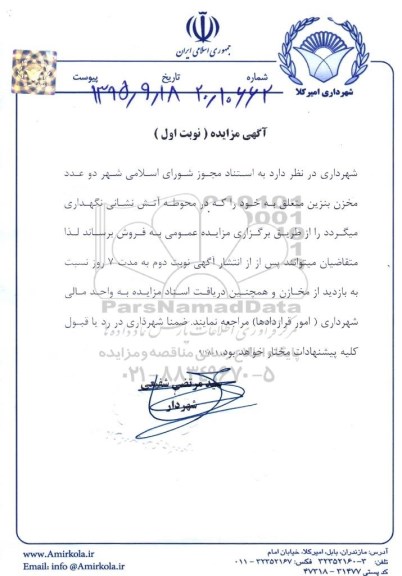 جمهوری اسلامی ایران
شهرداری امیرکلا
شماره تاریخ پیوست
۲۰/۱۰۶۶۲ ۱۳۹۵/۹/۱۸
آگهی مزایده ( نوبت اول )
شهرداری در نظر دارد به استناد مجوز شورای اسلامی شهر دو عدد
مخزن بنزین متعلق به خود را که در محوطه آتش نشانی نگهداری
میگردد را از طریق برگزاری مزایده عمومی به فروش برساند لذا
متقاضیان میتوانند پس از از انتشار آگهی نوبت دوم به مدت ۷ روز نسبت
به بازدید از مخازن و همچنین دریافت اسناد مزایده به واحد مالی
شهرداری ( امور قراردادها) مراجعه نمایند. ضمنا شهرداری در رد یا قبول
کلیه پیشنهادات مختار خواهد بود.
ParsNamadData
۰۲۱-۸۸۳۴۹۶۷۰-۵
سید مرتضی
شهردار
www.Amirkola.ir
Email: info @Amirkola.ir
آدرس: مازندران، بابل، امیرکلا، خیابان امام
تلفن: ۳-۳۲۳۵۲۱۶۰ فکس: ۳۲۳۵۲۱۶۷ - ۰۱۱
کد پستی ۳۱۴۷۷ - ۴۷۳۱۸